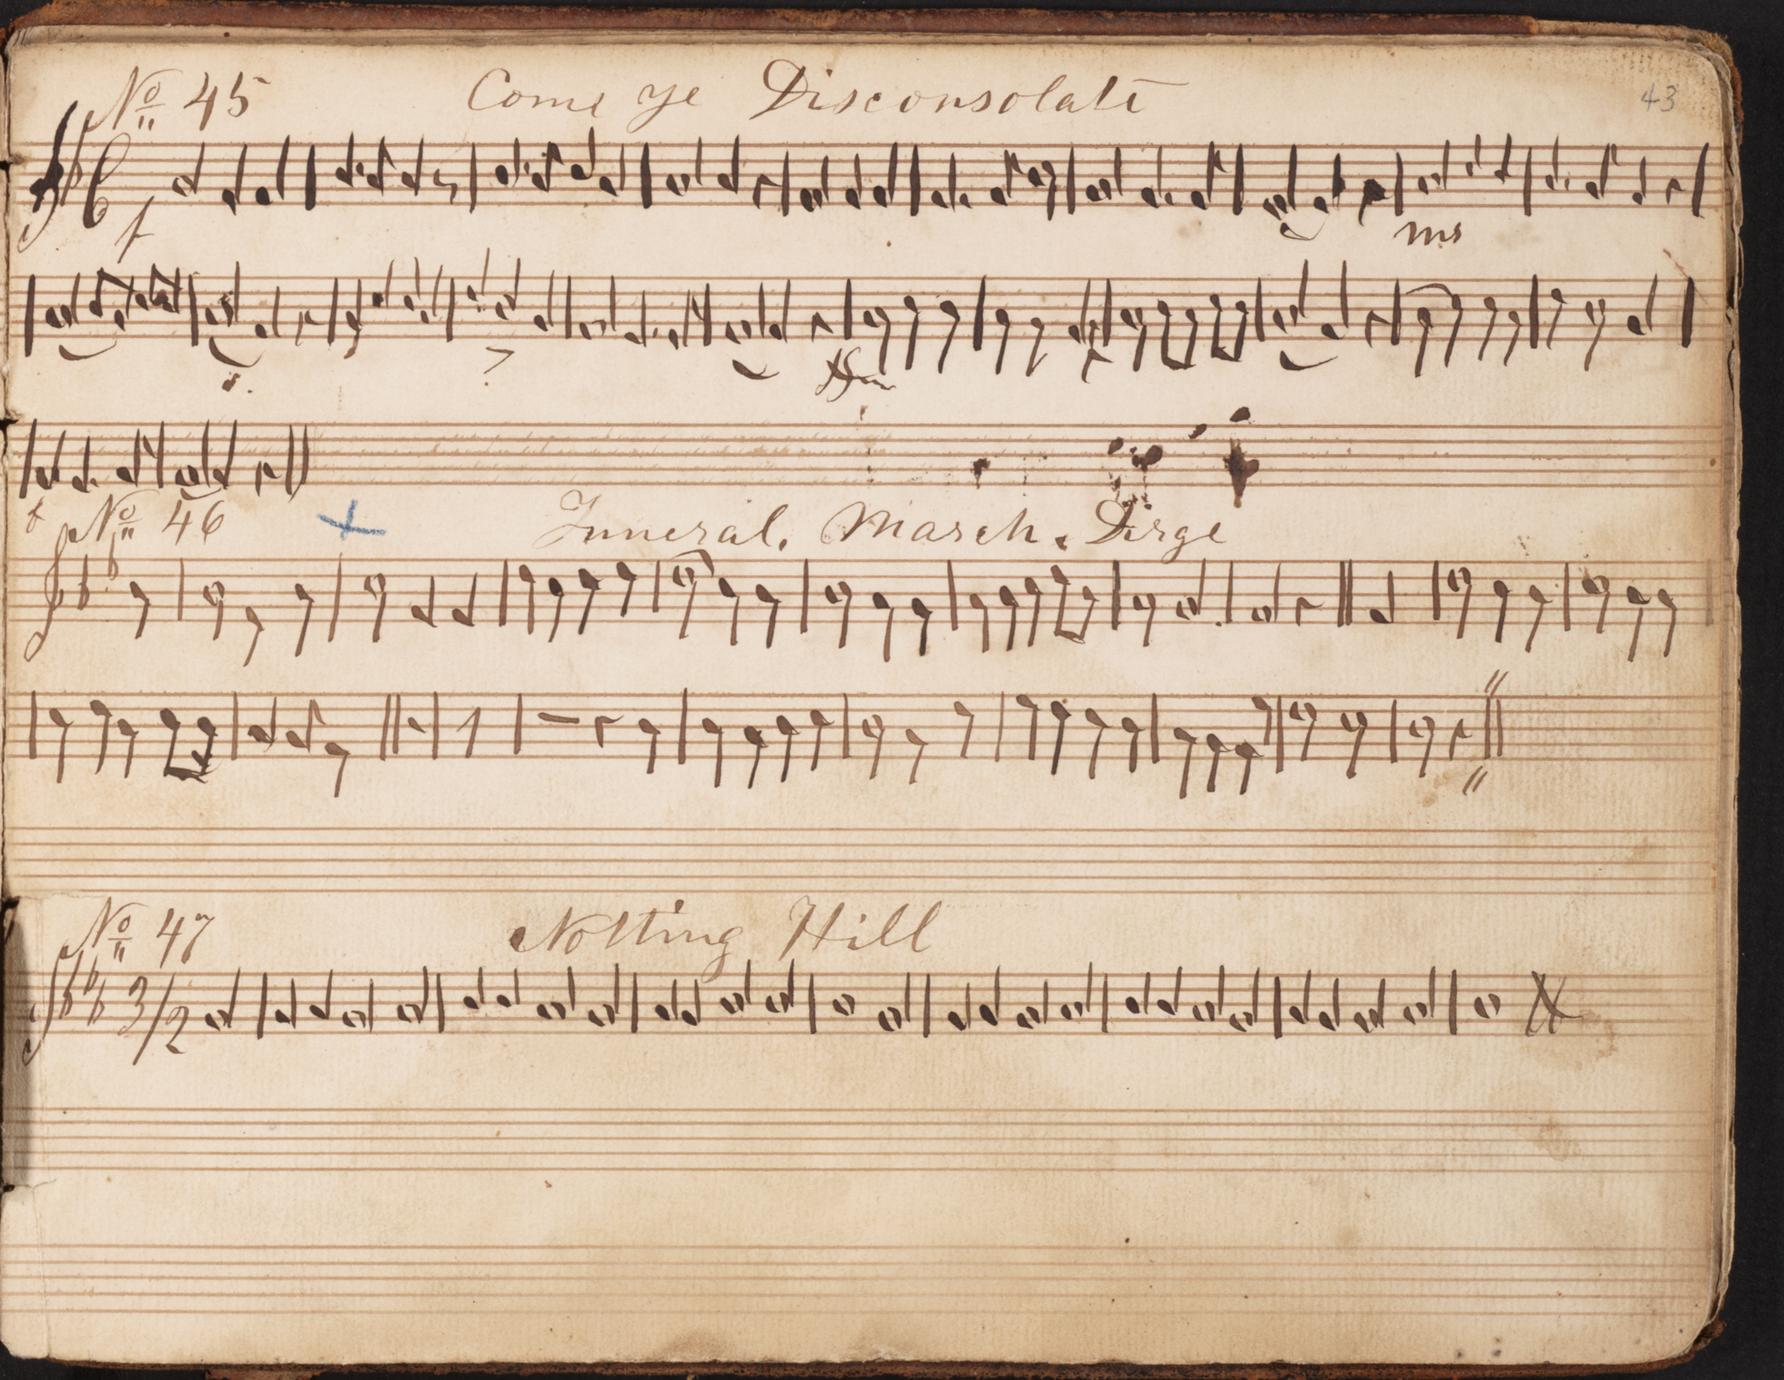 Nº 45 Come ye Disconsolate 43
f
ms
Nº 46 Funeral. March. Dirge
Nº 47 Notting Hill
3/2